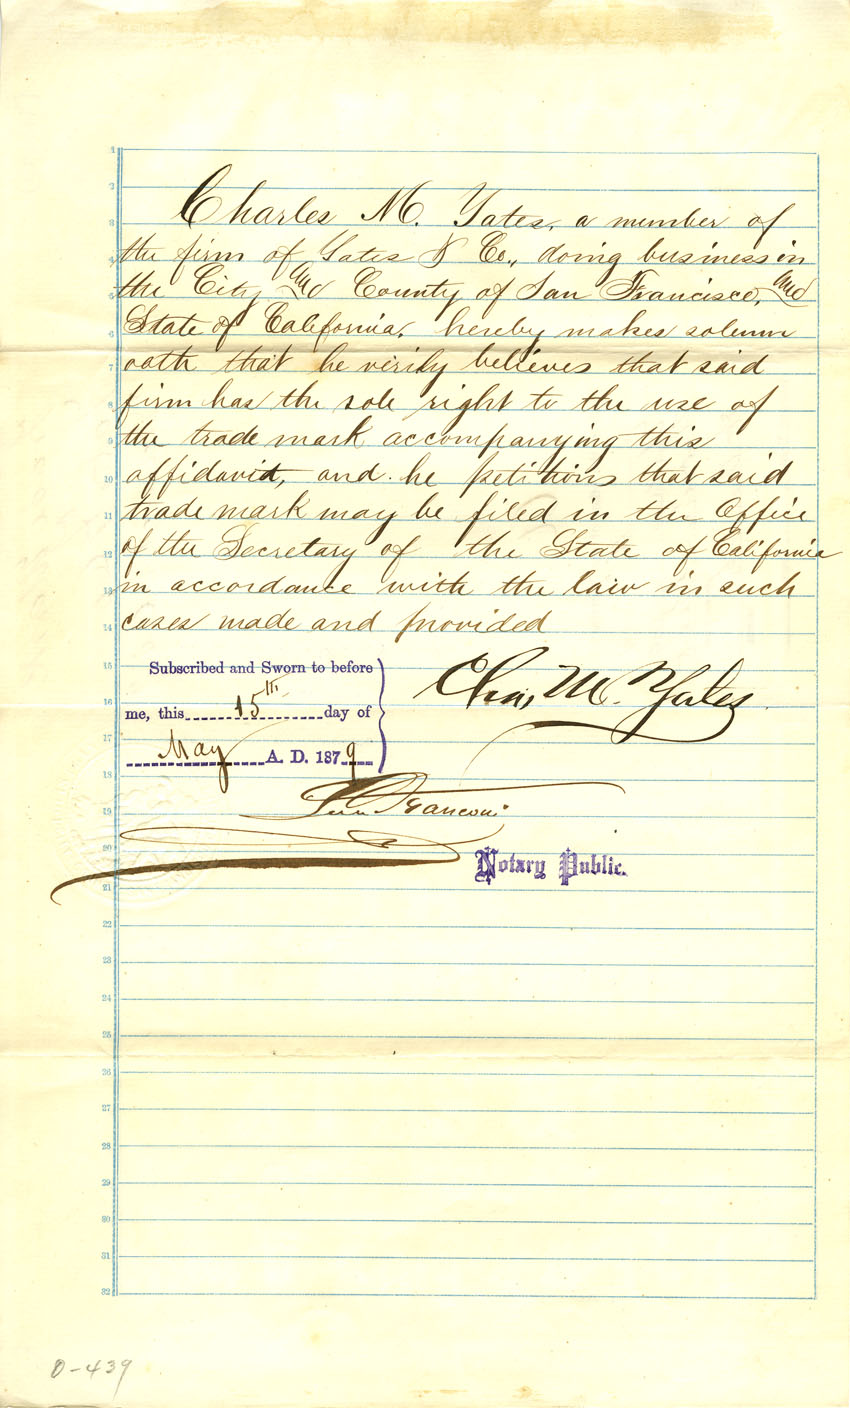 Charles M. Yates, a member of
the firm of Yates & Co., doing business in
the City and County of San Francisco, and
State of California, hereby makes solemn
oath that he verily believes that said
firm has the sole right to the use of
the trade mark accompanying this
affidavit, and he petitions that said
trade mark may be filed in the Office
of the Secretary of the State of California
in accordance with the law in such
cases made and provided
Subscribed and Sworn to before
me, this 15th day of
May A. D. 1879
Chas, M. Yates
Franconi
Notary Public.
0-439